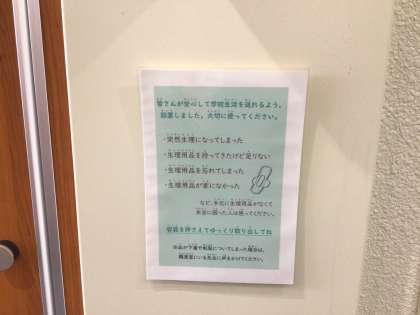 皆さんが安心して学校生活を送れるよう、
設置しました。大切に使ってください。
・突然生理になってしまった
・生理用品を持ってきたけど足りない
・生理用品を忘れてしまった
・生理用品が家になかった
など、手元に生理用品がなくて
本当に困った人は使ってください。
容器を押さえてゆっくり取り出してね
※品が下着や制服についてしまった場合は、
職員室にいる先生に声をかけてください。